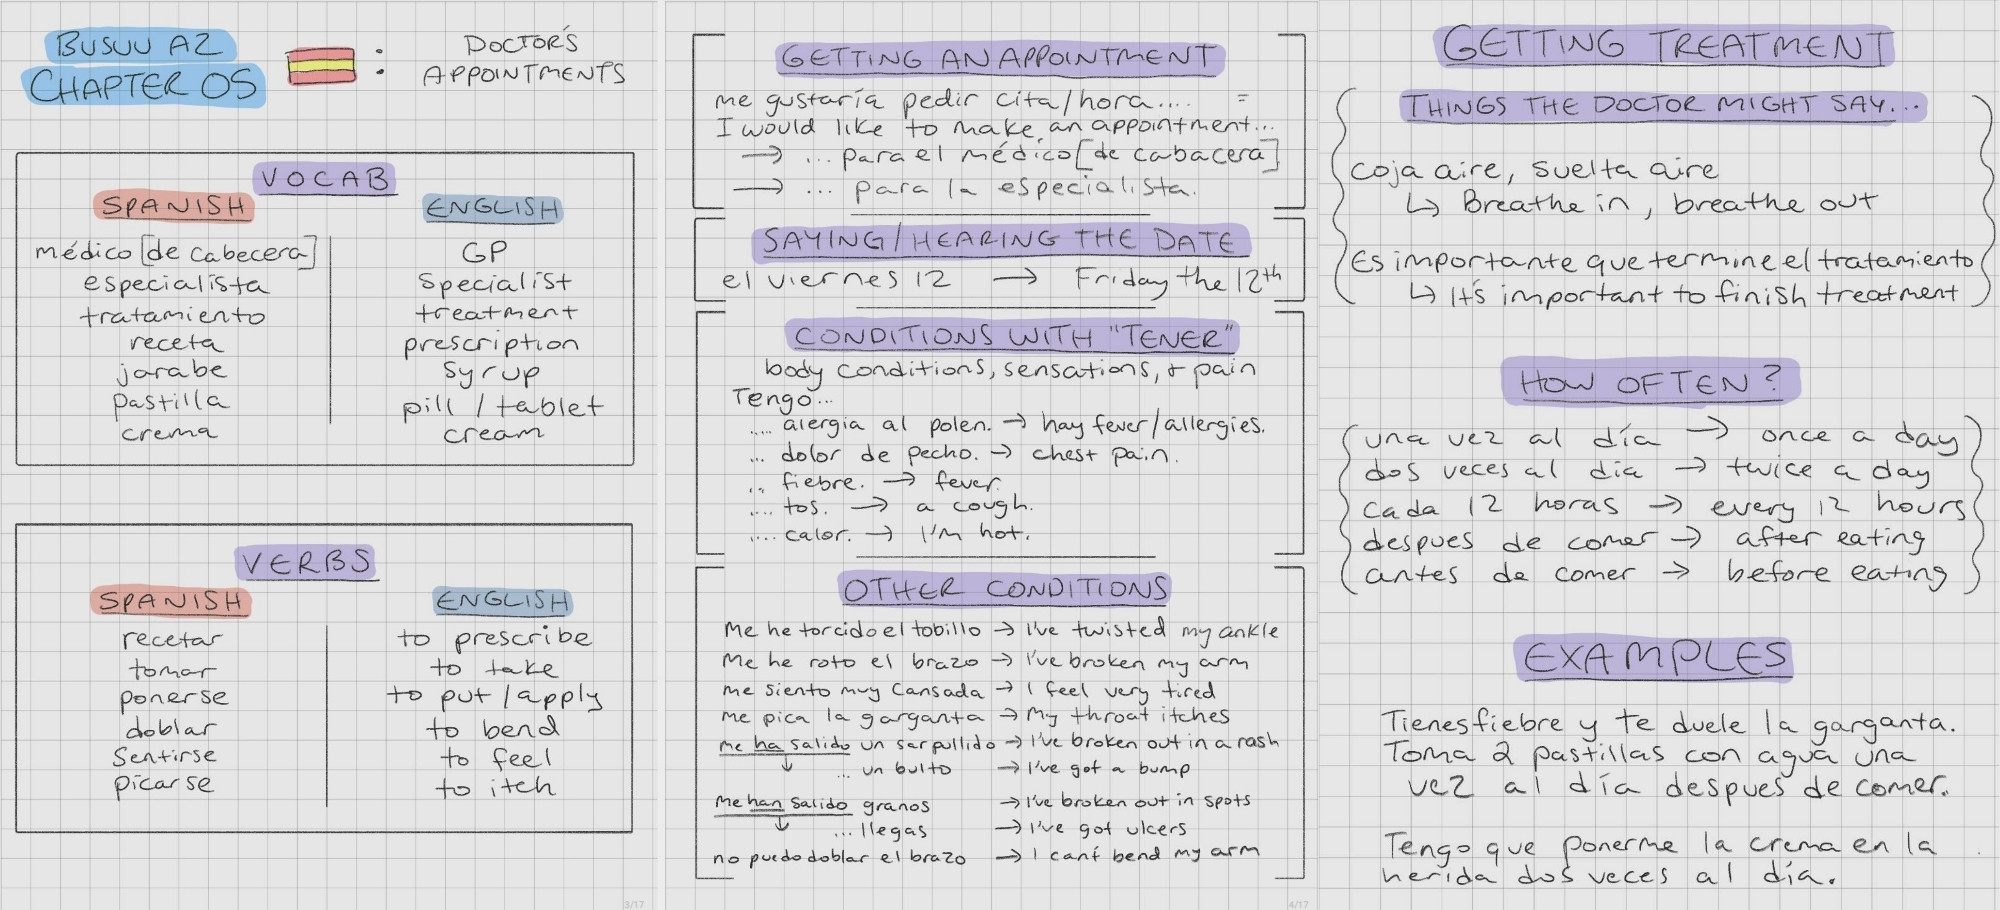 BUSUU A2
CHAPTER 05
: DOCTOR'S
APPOINTMENTS
VOCAB
SPANISH ENGLISH
médico [de cabecera] GP
especialista specialist
tratamiento treatment
receta prescription
jarabe syrup
pastilla pill / tablet
crema cream
VERBS
SPANISH ENGLISH
recetar to prescribe
tomar to take
ponerse to put / apply
doblar to bend
sentirse to feel
picarse to itch
3/17
GETTING AN APPOINTMENT
me gustaría pedir cita/hora.... =
I would like to make an appointment...
→ ... para el médico [de cabacera]
→ ... para la especialista.
SAYING/HEARING THE DATE
el viernes 12 → Friday the 12th
CONDITIONS WITH "TENER"
body conditions, sensations, + pain
Tengo...
.... alergia al polen. → hay fever/allergies.
... dolor de pecho. → chest pain.
... fiebre. → fever.
.... tos. → a cough.
.... calor. → I'm hot.
OTHER CONDITIONS
Me he torcido el tobillo → I've twisted my ankle
Me he roto el brazo → I've broken my arm
me siento muy cansada → I feel very tired
me pica la garganta → My throat itches
me ha salido un sarpullido → I've broken out in a rash
↓ ... un bulto → I've got a bump
me han salido granos → I've broken out in spots
↓ ... llegas → I've got ulcers
no puedo doblar el brazo → I can't bend my arm
4/17
GETTING TREATMENT
THINGS THE DOCTOR MIGHT SAY...
coja aire, suelta aire
↳ Breathe in, breathe out
Es importante que termine el tratamiento
↳ It's important to finish treatment
HOW OFTEN?
una vez al día → once a day
dos veces al dia → twice a day
cada 12 horas → every 12 hours
despues de comer → after eating
antes de comer → before eating
EXAMPLES
Tienes fiebre y te duele la garganta.
Toma 2 pastillas con agua una
vez al día despues de comer.
Tengo que ponerme la crema en la
herida dos veces al día.